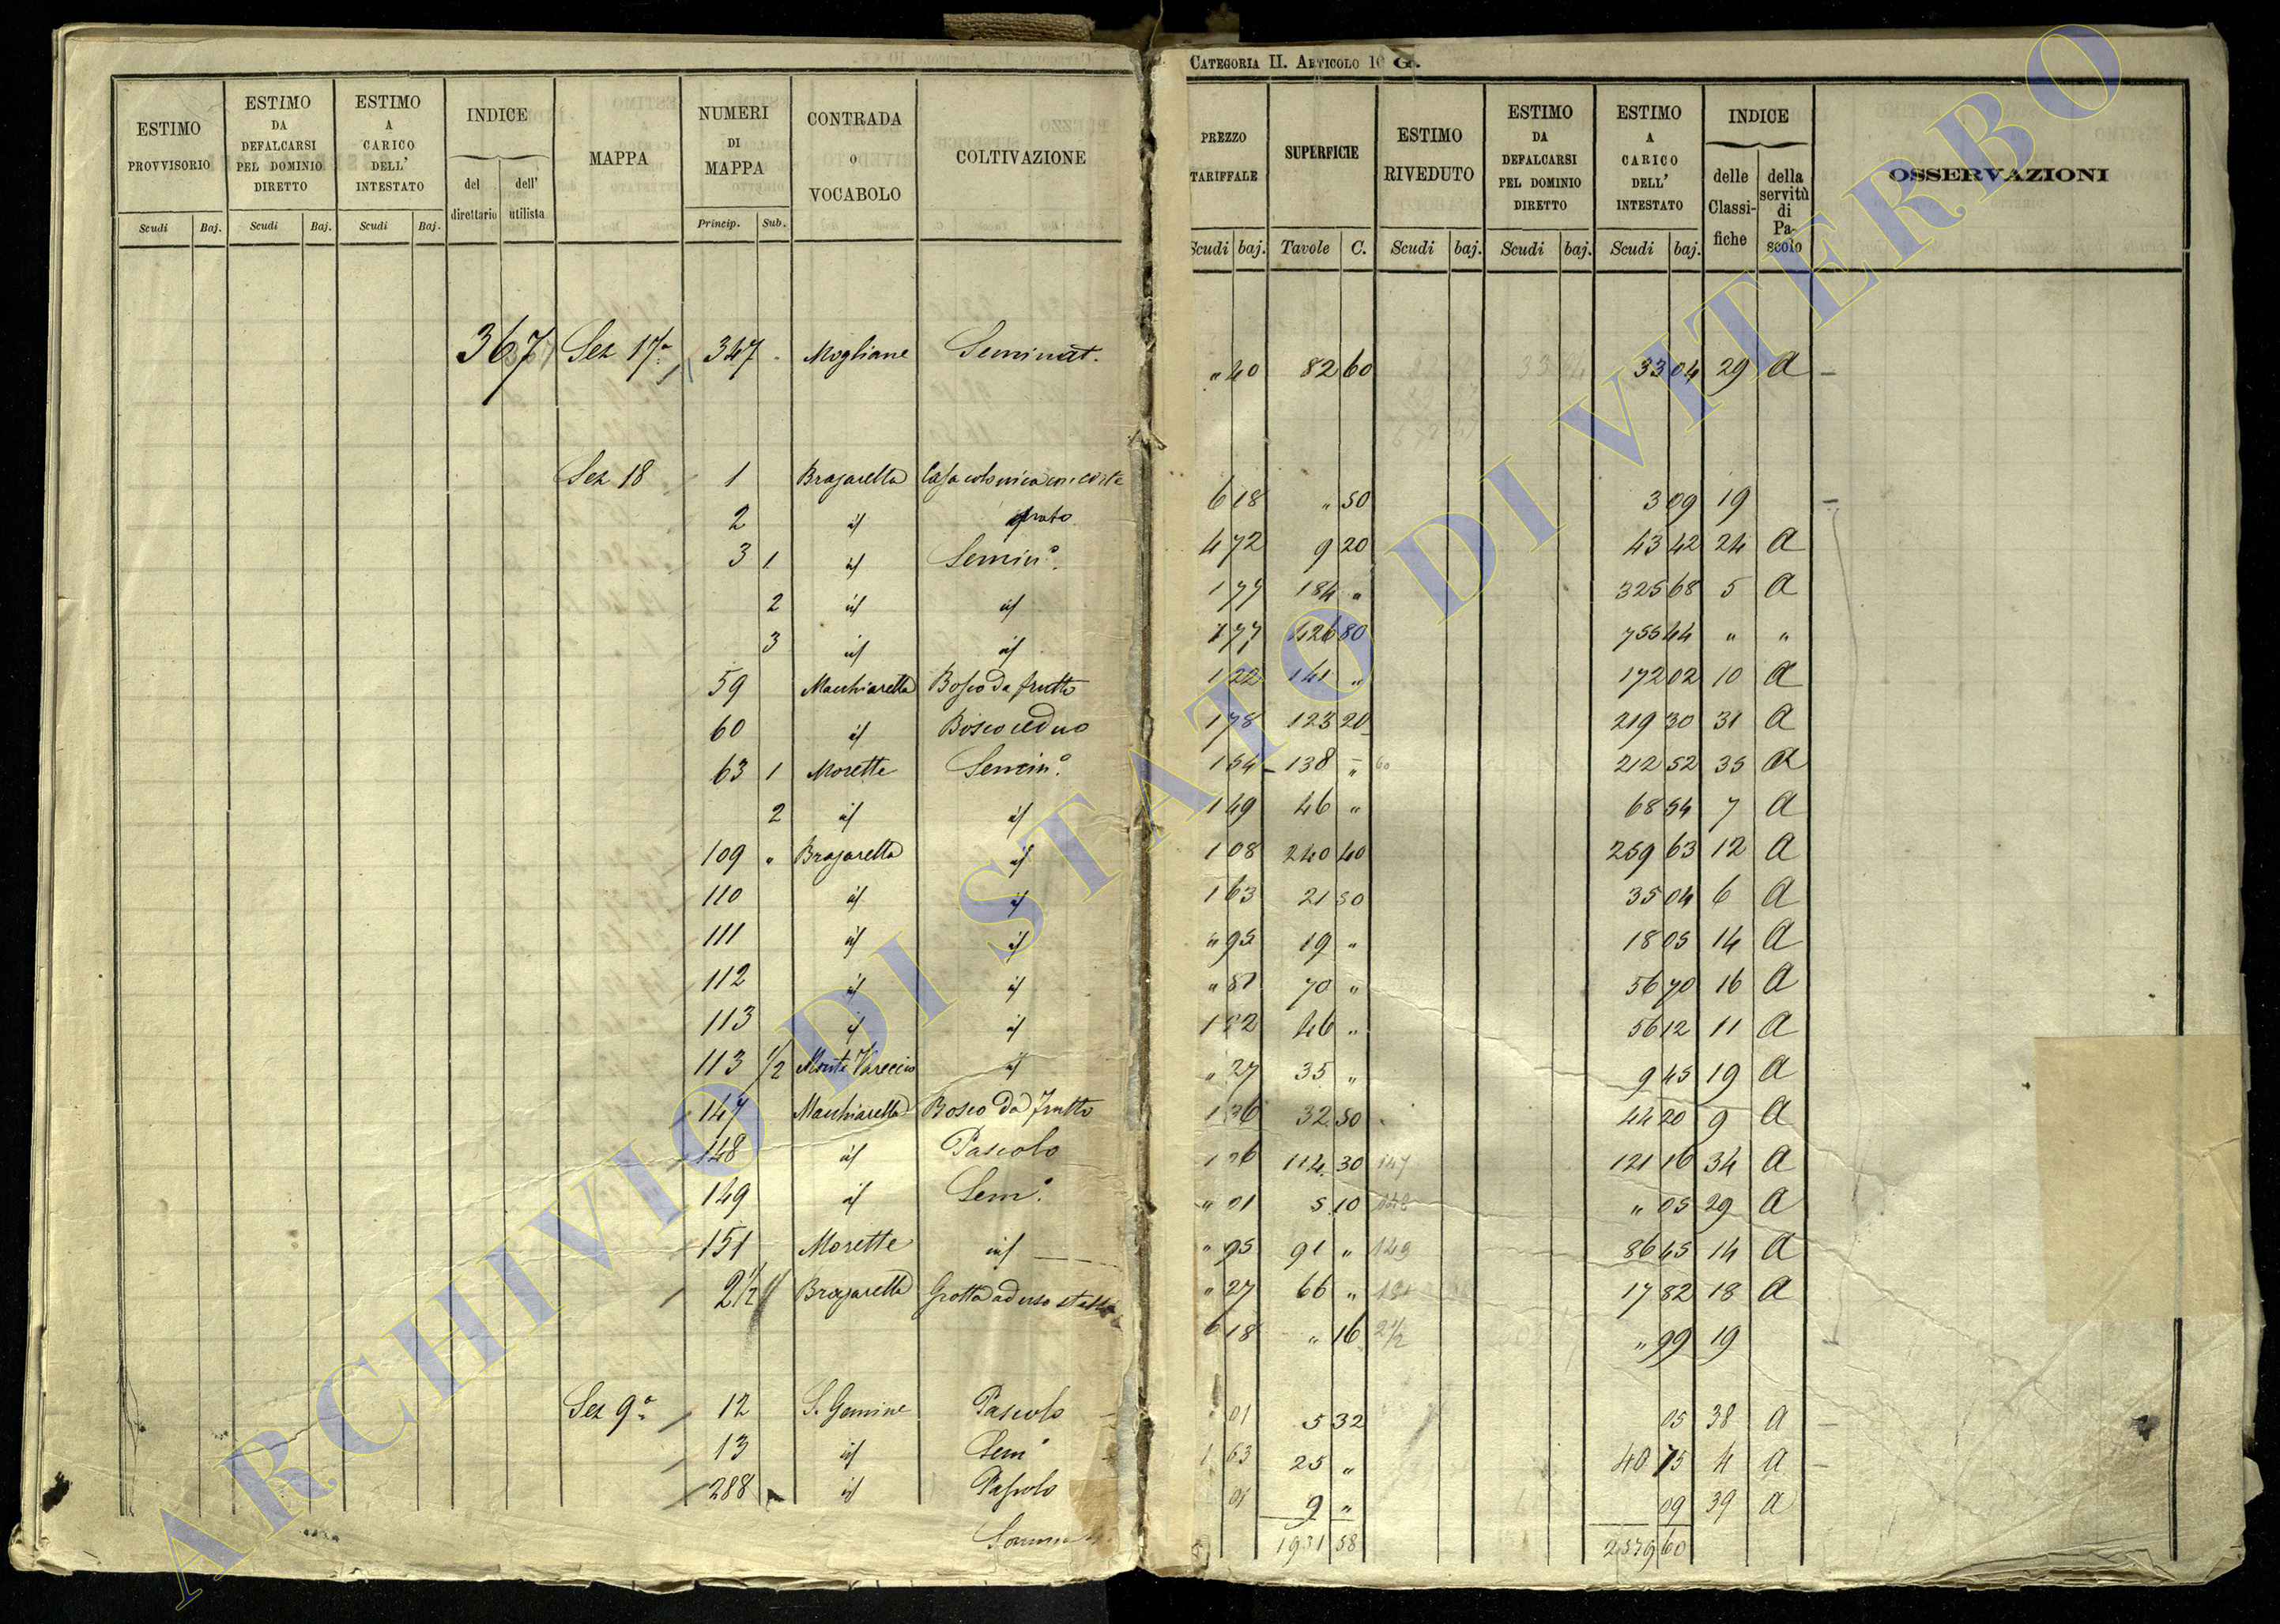 CATEGORIA II. ARTICOLO 10 G.
ESTIMO PROVVISORIO
ESTIMO DA DEFALCARSI PEL DOMINIO DIRETTO
ESTIMO A CARICO DELL' INTESTATO
INDICE
del direttario
dell' utilista
MAPPA
NUMERI DI MAPPA
CONTRADA o VOCABOLO
COLTIVAZIONE
Scudi Baj. Scudi Baj. Scudi Baj. Princip. Sub.
PREZZO TARIFFALE
SUPERFICIE
ESTIMO RIVEDUTO
ESTIMO DA DEFALCARSI PEL DOMINIO DIRETTO
ESTIMO A CARICO DELL' INTESTATO
INDICE
delle Classifiche
della servitù di Pascolo
OSSERVAZIONI
Scudi baj. Tavole C. Scudi baj. Scudi baj. Scudi baj.
367 Sez 17a 347 Mogliane Seminat. " 40 82 60 33 04 29 A
Sez 18 1 Brajaretta Casa colonica con corte 6 18 " 50 3 09 19
2 id prato 4 72 9 20 43 42 24 A
3 1 id Semino. 1 77 184 " 325 68 5 A
2 id id 1 77 426 80 755 44 " "
3 id id 1 22 141 " 172 02 10 A
59 Macchiaretta Bosco da frutto 1 78 123 20 219 30 31 A
60 id Bosco ceduo 1 54 138 " 60 212 52 35 A
63 1 Morette Semino. 1 49 46 " 68 54 7 A
2 id id 1 08 240 40 259 63 12 A
109 " Brajaretta id 1 63 21 50 35 04 6 A
110 id id " 95 19 " 18 05 14 A
111 id id " 81 70 " 56 70 16 A
112 id id 1 22 46 " 56 12 11 A
113 id id " 27 35 " 9 45 19 A
113 1/2 Monte Vareccio id 1 36 32 50 44 20 9 A
147 Macchiaretta Bosco da frutto 1 06 114 30 147 121 16 34 A
148 id Pascolo " 01 5 10 148 " 05 29 A
149 id Semo. " 95 91 " 149 86 45 14 A
151 Morette id " 27 66 " 151 17 82 18 A
2 1/2 Brajaretta Grotta ad uso stalla 6 18 " 16 2 1/2 " 99 19
Sez 9a 12 S. Gemine Pascolo 01 5 32 05 38 A
13 id Semo 1 63 25 " 40 75 4 A
288 id Pascolo 01 9 " 09 39 A
1931 58 2579 60
ARCHIVIO DI STATO DI VITERBO